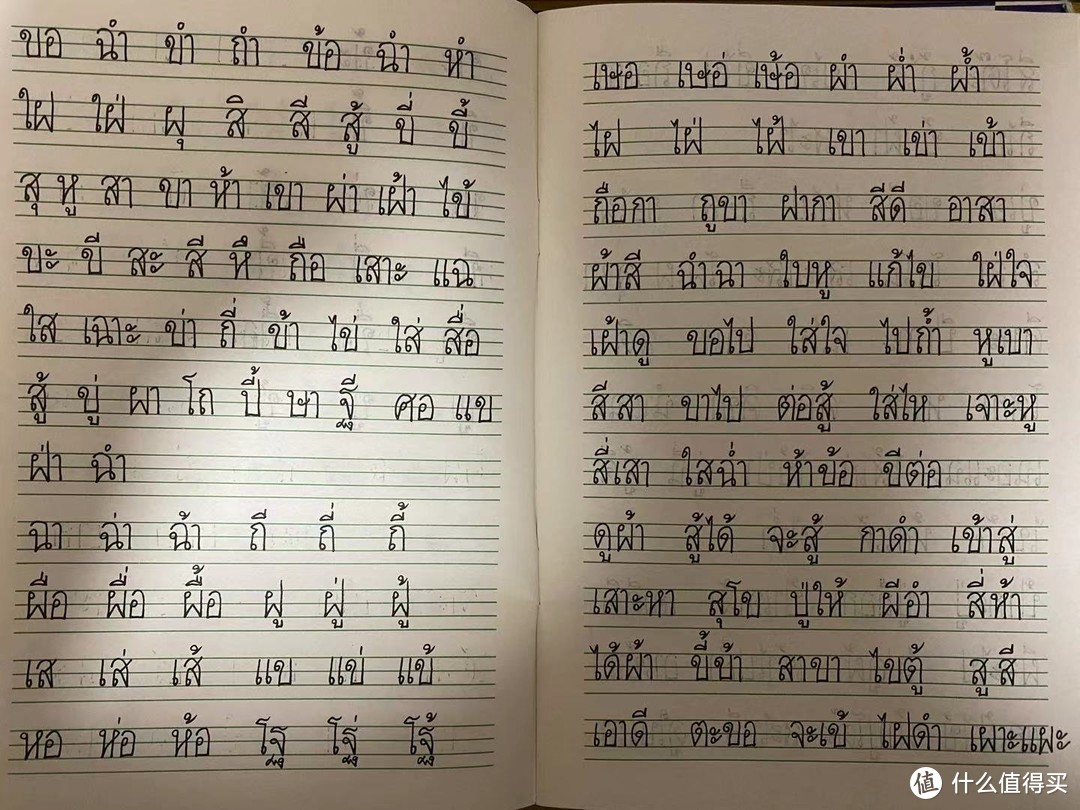 ขอ ฉำ ขำ ถำ ข้อ ฉำ หำ
ใฝ ใฝ่ ผุ สิ สี สู้ ขี่ ขี้
สุ หู สา ขา ห้า เขา ผ่า เฝ้า ไข้
ขะ ขี สะ สี หึ ถือ เสาะ แฉ
ใส เฉาะ ข่า ถี่ ข้า ไข่ ใส่ สื่อ
สู้ ขู่ ผา โถ ปี้ ษา ศอ แข
ฝ่า ฉำ
ฉา ฉ่า ฉ้า ถี ถี่ ถี้
ผือ ผื่อ ผื้อ ฝู ฝู่ ฝู้
เส เส่ เส้ แข แข่ แข้
หอ ห่อ ห้อ โฐ โฐ่ โฐ้
เษอ เษอ่ เษ้อ ผำ ผ่ำ ผ้ำ
ไฝ ไฝ่ ไฝ้ เขา เข่า เข้า
ถือกา ถูขา ฝากา สีดี อาสา
ผ้าสี ฉำฉา ใบหู แก้ไข ใฝ่ใจ
เฝ้าดู ขอไป ใส่ใจ ไปถ้ำ หูเบา
สีสา ขาไป ต่อสู้ ใส่ไห เจาะหู
สี่เสา ใสฉ่ำ ห้าข้อ ขีต่อ
ดูผ้า สู้ได้ จะสู้ กาดำ เข้าสู่
เสาะหา สุโข ปู่ให้ ผีอำ สี่ห้า
ได้ผ้า ขี้ข้า สาขา ไขตู้ สูสี
เอาดี ตะขอ จะเข้ ไฝดำ เผาะแผะ
值 什么值得买